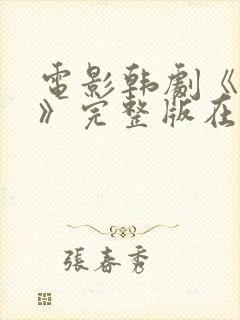 電影韩劇《
》完整版在
張春秀